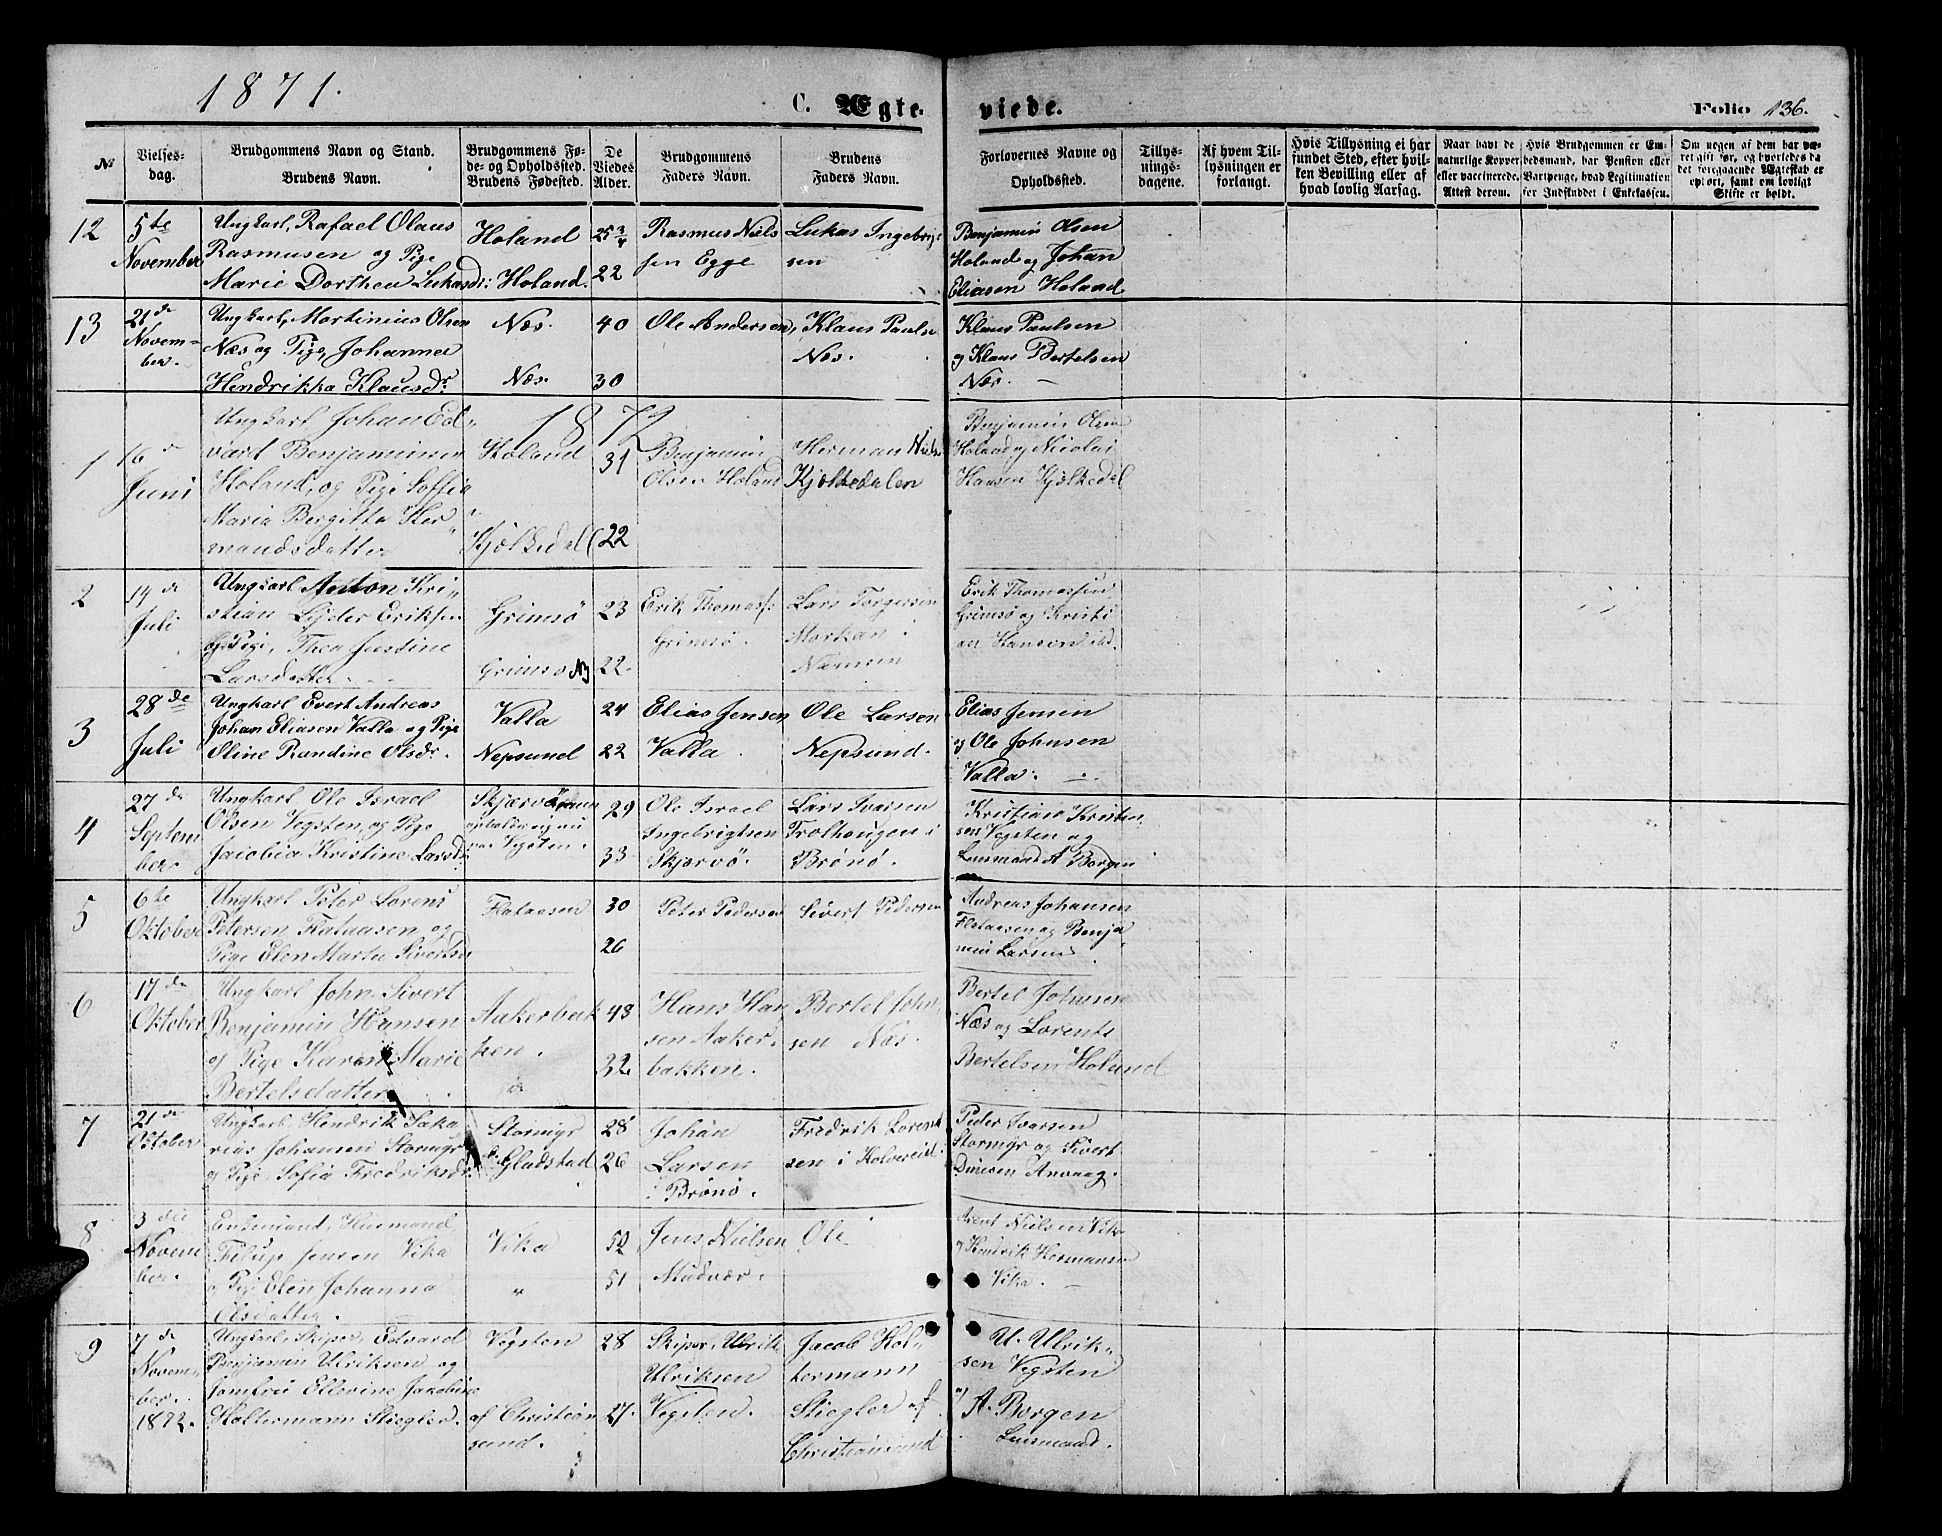 1871.
C. Ægte-
viede.
Folio 136.
No
Vielses-
dag.
Brudgommens Navn og Stand.
Brudens Navn.
Brudgommens Fø-
de- og Opholdssted.
Brudens Fødested.
De
Viedes
Alder.
Brudgommens
Faders Navn.
Brudens
Faders Navn.
Forlovernes Navne og
Opholdssted.
Tillys-
nings-
dagene.
Af hvem Til-
lysningen er
forlangt.
Hvis Tillysning ei har
fundet Sted, efter hvil-
ken Bevilling eller af
hvad lovlig Aarsag.
Naar havt de
naturlige Kopper
eller vaccinerede.
Attest derom.
Hvis Brudgommen er Em-
bedsmand, har Pension eller
Vartpenge, hvad Legitimation
for Indskuddet i Enkekassen.
Om nogen af dem har væ-
ret gift før, og hvorledes da
det foregaaende Ægteskab er
ophørt, samt om lovligt
Skifte er holdt.
12
5te
November
Ungkarl, Rafael Olaus
Rasmusen og Pige
Marie Dorthea Lukasd:
Holand
Holand.
25 3/4
22
Rasmus Niels
sen Egge
Lukas Ingebrigt
sen
Benjamin Olsen
Holand og Johan
Eliasen Holand
13
21de
Novem-
ber.
Ungkarl, Martinius Olsen
Næs og Pige, Johanna
Hendrikka Klausdr.
Næs.
Næs.
40
30
Ole Andersen,
Klaus Pauls
Næs.
Klaus Paulsen
og Klaus Bertelsen
Næs. —
1872
1
16de
Juni
Ungkarl Johan Ed-
vart Benjaminsen
Holand, og Pige Soffia
Maria Bergitta Her-
mandsdatter
Holand
Kjølkedal
31
22
Benjamin
Olsen Holand
Herman Niels
Kjølkedalen
Benjamin Olsen
Holand og Nicolai
Hansen Kjølkedal
2
14de
Juli
Ungkarl Anton Kri-
stian Lyder Eriksen
og Pige, Thea Justine
Larsdatter.
Grimsö
Grimsö
23
22.
Erik Thomass.
Grimsö.
Lars Torgersen
Markan
Næmsen
Erik Thomassen
Grimsö og Kristi
an Hansen ibd.
3
28de
Juli
Ungkarl Evert Andreas
Johan Eliasen Valla og Pige
Oline Randine Olsdr.
Valla
Nepsund
24
22
Elias Jensen
Valla.
Ole Larsen
Nepsund.
Elias Jensen
og Ole Johnsen
Valla. —
4
27de
Septem
ber.
Ungkarl Ole Israel
Olsen Vegsten, og Pige
Jacobia Kristine Larsdr
Skjærvö
opholder sig nu
paa Vegsten.
29
33
Ole Israel
Ingebrigtsen
Skjærvö.
Lars Ivarsen
Trolhaugen i
Brönö.
Kristian Kristen
sen Vegsten og
Lensmand A Borgen
5
6te
Oktober
Ungkarl Peter Lorens
Petersen Flataasen og
Pige Elen Marta Sivertsd
Flataasen
30
26
Peter Pedersen
Sivert Pedersen
Andreas Johansen
Flataasen og Benja
min Larsen.
6
17de
Oktober
Ungkarl John Sivert
Benjamin Hansen
og Pige Karen Marie
Bertelsdatter
Aakerbak
ken.
48
32
Hans Han
sen Aaker.
bakken.
Bertel John
sen Næs.
Bertel Johnsen
Næs og Lorents
Bertelsen Holand
7
21de
Oktober
Ungkarl, Hendrik Saka
rias Johansen Stormyr
og Pige, Sofia Fredriksdr.
Stormyr
Gladstad
28
26
Johan
Larsen
i Brönö.
Fredrik Lorent
sen i Holvereid.
Peder Ivarsen
Stormyr og Sivert
Dinesen Anvaag.
8
3die
Novem
ber.
Enkemand, Husmand,
Filup Jensen Vika
og Pige Elen Johanna
Olsdatter.
Vika
"
52
51
Jens Nielsen
Mudvær.
Ole
Arent Nielsen Vika
og Hendrik Hermansen
Vika. —
9
7de
Novem-
ber.
1872.
Ungkarl, Skiper, Edvard
Benjamin Ulriksen og
Jomfru Ellerine Jakobine
Holtermann Stiegler.
Vegsten
af Christian
sund.
28
27.
Skiper, Ulrik
Ulriksen
Vegsten.
Jacob Hol-
termann
Stiegler af
Christiansund
U. Ulrik-
sen Vegsten
og A. Borgen
Lensmand.